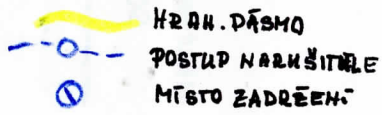 HRAN. PÁSMO
POSTUP NARUŠITELE
MÍSTO ZADRŽENÍ